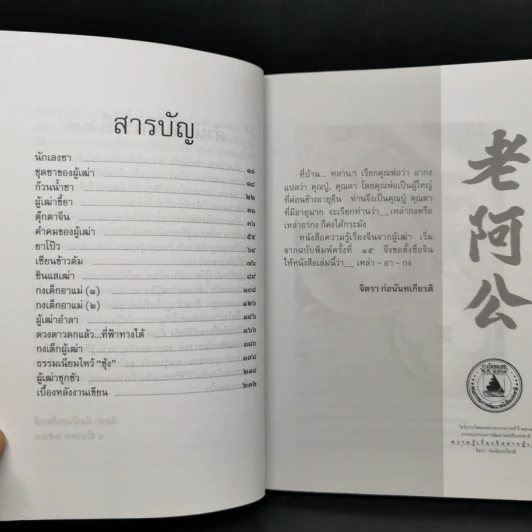 สารบัญ
นักเลงชา ๑๑
ชุดชาของผู้เฒ่า ๑๘
ก๊วนน้ำชา ๒๒
ผู้เฒ่าขี้ยา ๓๑
ตุ๊กตาจีน
คำคมของผู้เฒ่า ๕๔
ยาโป๊ว ๖๔
เซียนข้าวต้ม ๗๖
ซินแสเฒ่า ๘๙
กงเต็กอาแม่ (๑) ๑๐๘
กงเต็กอาแม่ (๒) ๑๒๖
ผู้เฒ่าอำลา ๑๔๖
ดวงดาวตกแล้ว...ที่ฟ้าทางใต้ ๑๖๖
กงเต็กผู้เฒ่า ๑๘๐
ธรรมเนียมไหว้ “ซุ้ง”
ผู้เฒ่าชุกชัว
เบื้องหลังงานเขียน ๒๓๖
ที่บ้าน... หลานๆ เรียกคุณพ่อว่า อากง
แปลว่า คุณปู่, คุณตา โดยคุณพ่อเป็นผู้ใหญ่
ที่ค่อนข้างอายุยืน ท่านจึงเป็นคุณปู่ คุณตา
ที่มีอายุมาก จะเรียกท่านว่า__ เหล่ากงหรือ
เหล่าอากง ก็คงได้กระมัง
หนังสือความรู้เรื่องจีนจากผู้เฒ่า เริ่ม
จากฉบับพิมพ์ครั้งที่ ๑๕ จึงขอตั้งชื่อจีน
ให้หนังสือเล่มนี้ว่า__ เหล่า - อา - กง
จิตรา ก่อนันทเกียรติ
老阿公